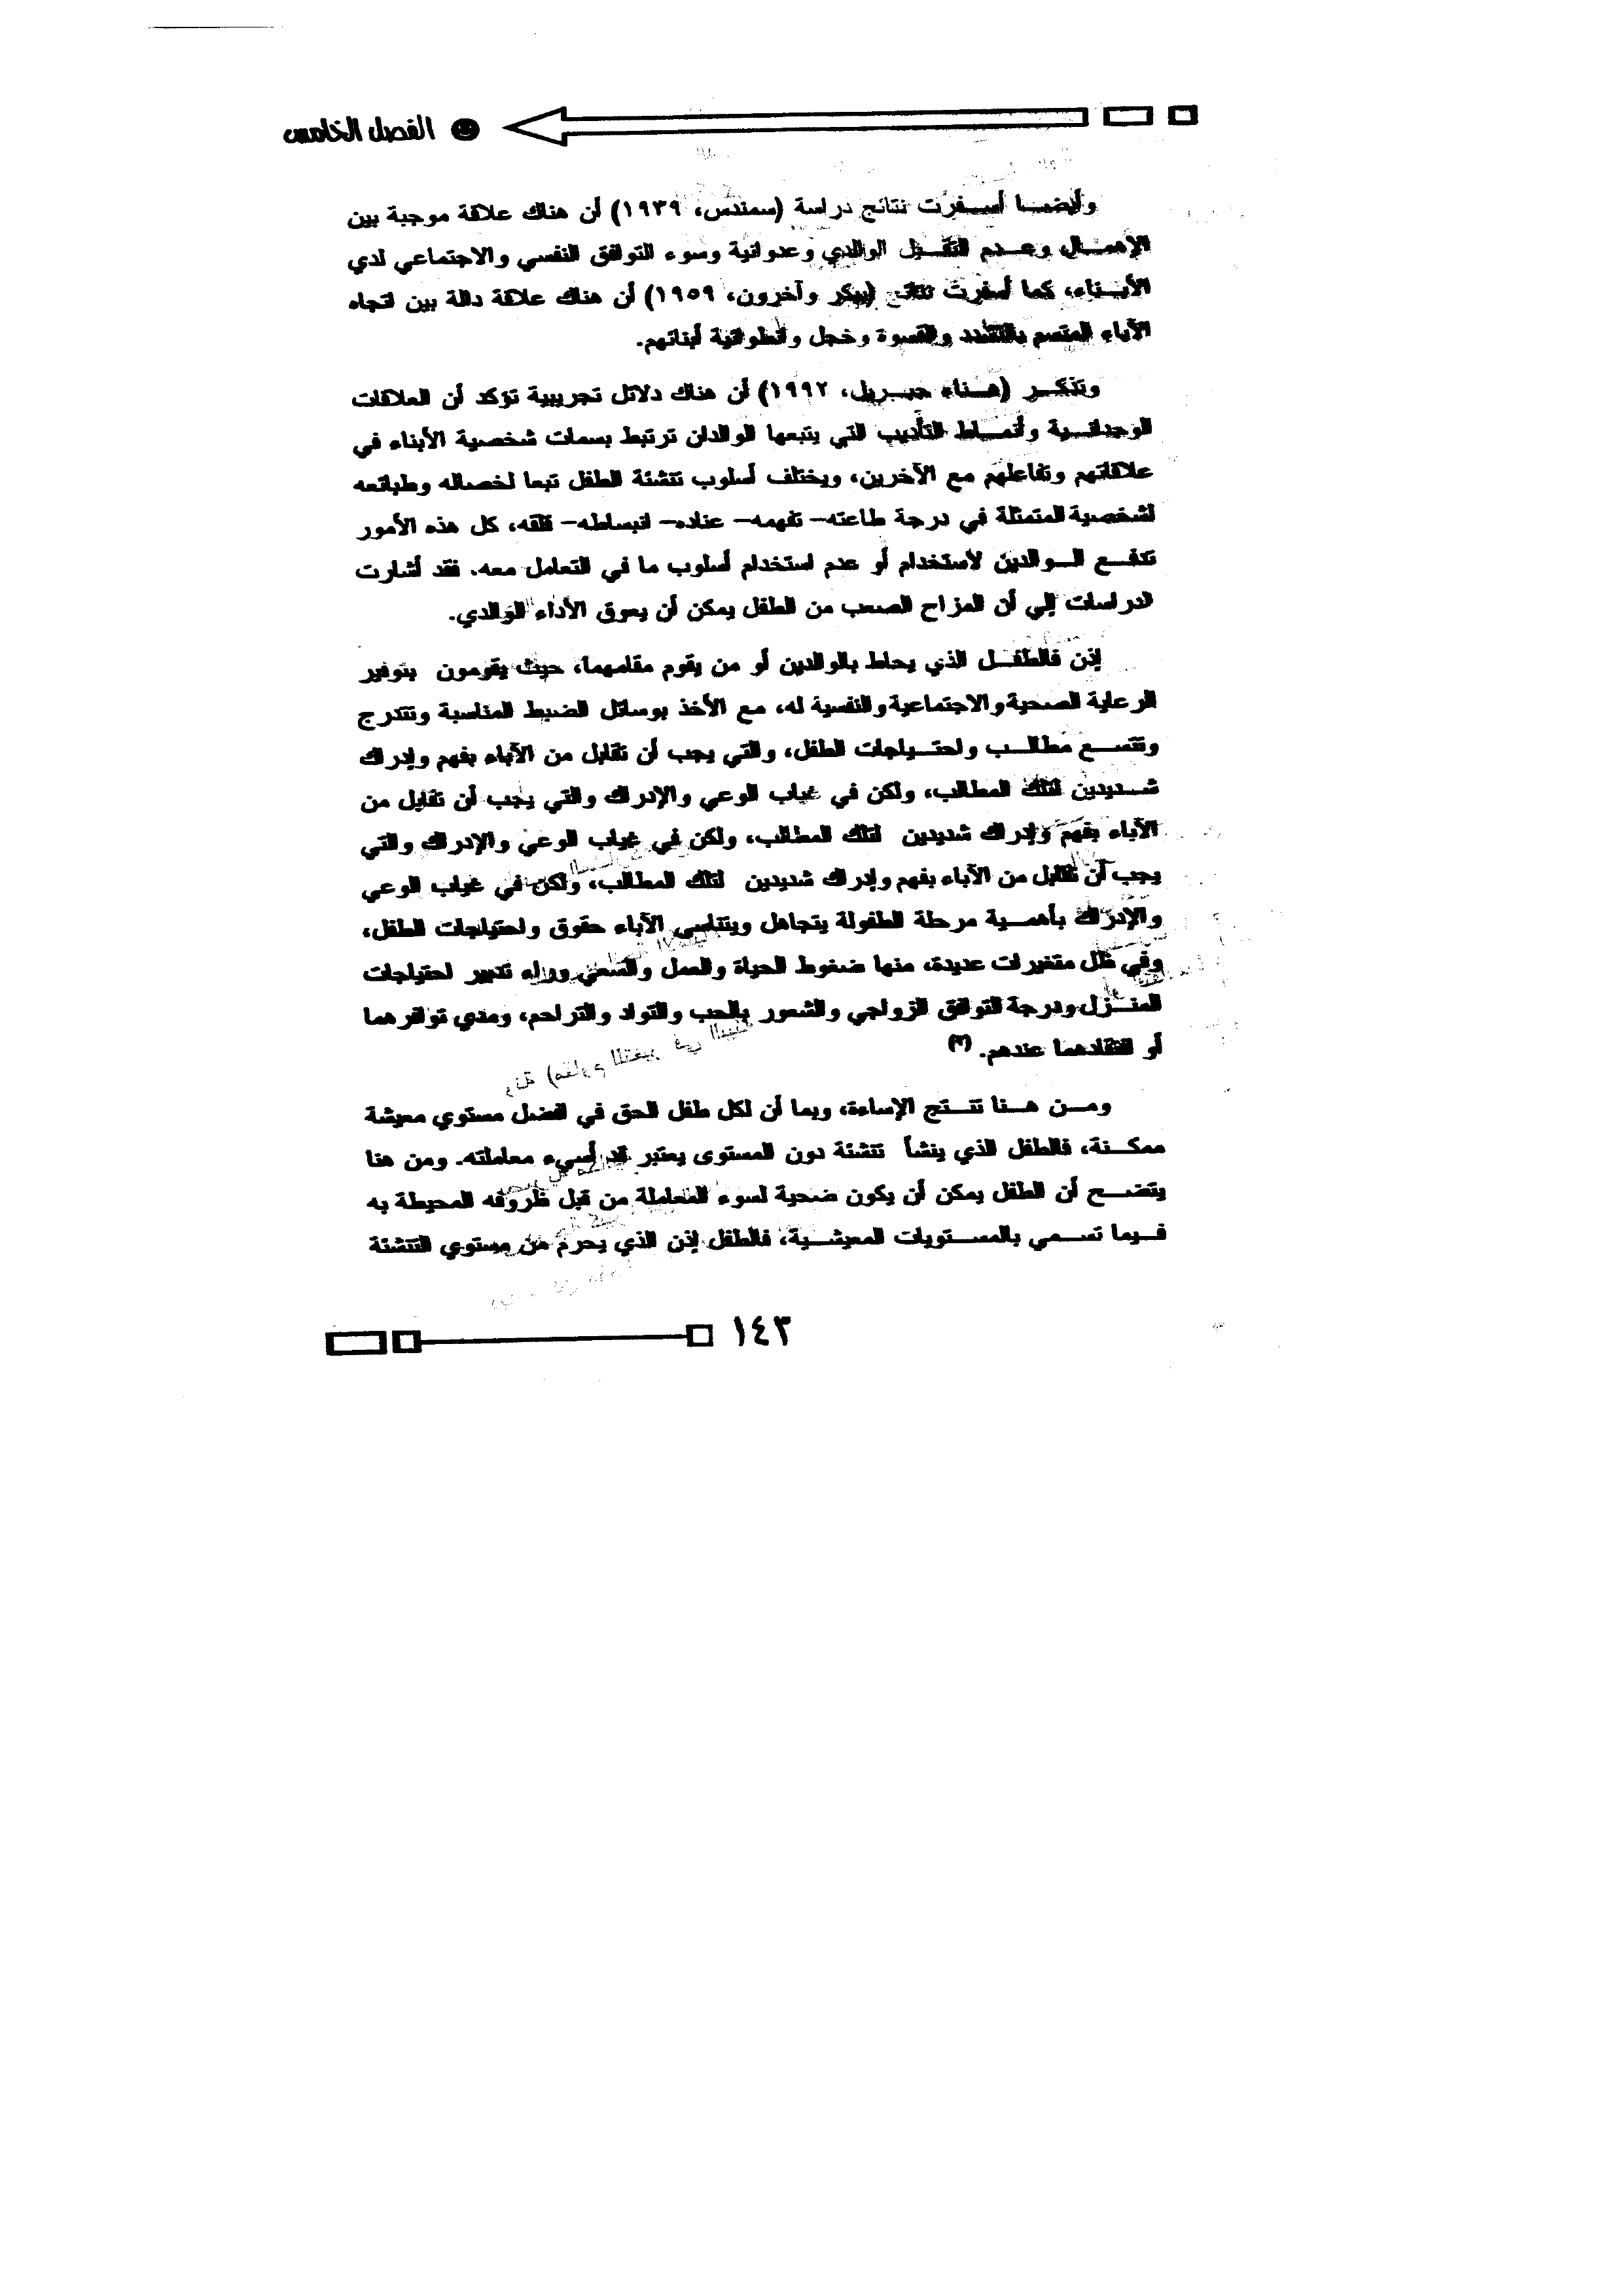 الفصل الخامس
وأيضا أسفرت نتائج دراسة (سمندس، ١٩٣٩) أن هناك علاقة موجبة بين
الإهمال وعدم التقبل الوالدي وعدوانية وسوء التوافق النفسي والاجتماعي لدي
الأبناء، كما أسفرت نتائج (بيكر وآخرون، ١٩٥٩) أن هناك علاقة دالة بين اتجاه
الآباء المتسم بالتشدد والقسوة وخجل وانطوائية أبنائهم.
وتذكر (هناء جبريل، ١٩٩٢) أن هناك دلائل تجريبية تؤكد أن العلاقات
الوجدانية وأنماط التأديب التي يتبعها الوالدان ترتبط بسمات شخصية الأبناء في
علاقاتهم وتفاعلهم مع الآخرين، ويختلف أسلوب تنشئة الطفل تبعا لخصاله وطبائعه
لشخصية المتمثلة في درجة طاعته– تفهمه– عناده– انبساطه– قلقه، كل هذه الأمور
تدفع الوالدين لاستخدام أو عدم استخدام أسلوب ما في التعامل معه. فقد أشارت
الدراسات إلي أن المزاح الصعب من الطفل يمكن أن يعوق الأداء الوالدي.
إذن فالطفل الذي يحاط بالوالدين أو من يقوم مقامهما، حيث يقومون بتوفير
الرعاية الصحية والاجتماعية والنفسية له، مع الأخذ بوسائل الضبط المناسبة وتتدرج
وتتسع مطالب واحتياجات الطفل، والتي يجب أن تقابل من الآباء بفهم وإدراك
شديدين لتلك المطالب، ولكن في غياب الوعي والإدراك والتي يجب أن تقابل من
الآباء بفهم وإدراك شديدين لتلك المطالب، ولكن في غياب الوعي والإدراك والتي
يجب أن تقابل من الآباء بفهم وإدراك شديدين لتلك المطالب، ولكن في غياب الوعي
والإدراك بأهمية مرحلة الطفولة يتجاهل ويتناسي الآباء حقوق واحتياجات الطفل،
وفي ظل متغيرات عديدة، منها ضغوط الحياة والعمل والسعي وراء تدبير احتياجات
المنزل ودرجة التوافق الزواجي والشعور بالحب والتواد والتراحم، ومدي توافرهما
أو افتقادهما عندهم. (٣)
ومن هنا تنتج الإساءة، وبما أن لكل طفل الحق في افضل مستوي معيشة
ممكنة، فالطفل الذي ينشأ تنشئة دون المستوى يعتبر قد أسيء معاملته. ومن هنا
يتضح أن الطفل يمكن أن يكون ضحية لسوء المعاملة من قبل ظروفه المحيطة به
فيما تسمي بالمستويات المعيشية، فالطفل إذن الذي يحرم من مستوي التنشئة
١٤٣